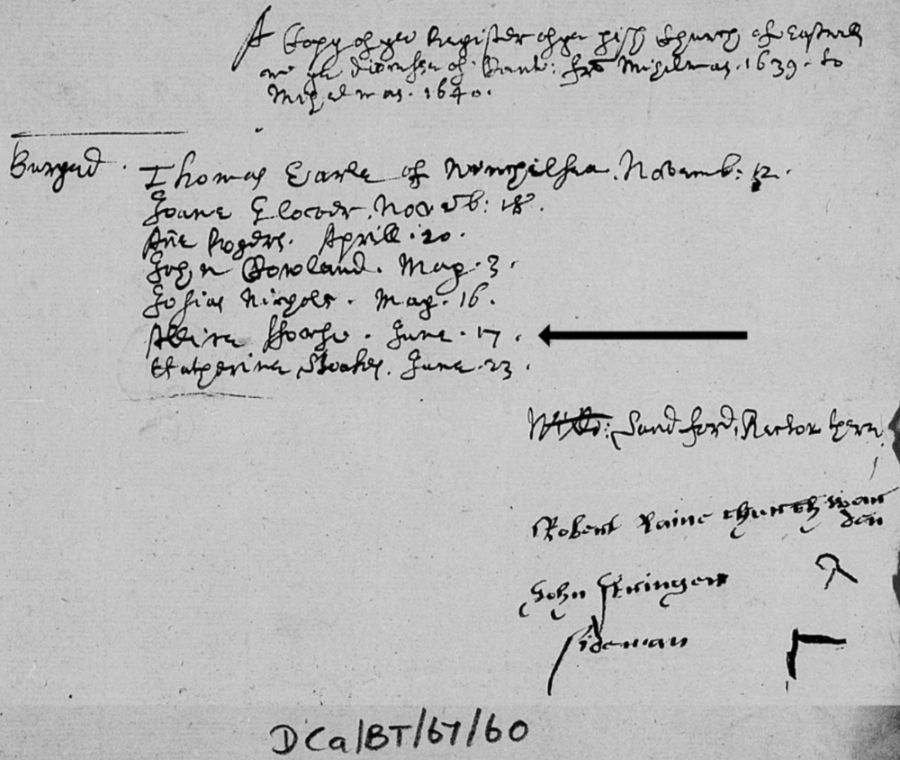 A Copy of ye Register of ye pish Church of Eastwell
in ye diocesse of Cant: frō Michelmas. 1639. to
Michelmas. 1640.
Buryed. Thomas Earle of Winchilsea. Novemb: 12.
Joane Glover. Novēb: 18.
Añe Rogers. Aprill. 20.
John Rowland. May. 3.
Josias Nichols. May. 16.
June. 17.
Katherine Stoakes. June. 23.
Sandford, Rector
Robert Raine church war
den
John Stringer
sideman
DCa/BT/67/60